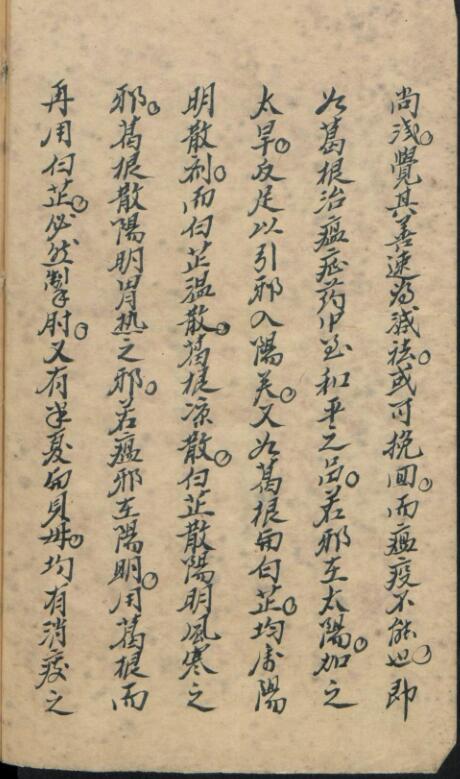 尚浅。覺其善速為減祛。或可挽回。而瘟疫不能也。即
如葛根治瘟症药中至和平之品。若邪在太陽。加之
太早。反足以引邪入陽矣。又如葛根与白芷。均属陽
明散剂。而白芷温散。葛根凉散。白芷散陽明風寒之
邪。葛根散陽明胃热之邪。若瘟邪在陽明。用葛根而
再用白芷。必然掣肘。又有半夏与貝母。均有消痰之